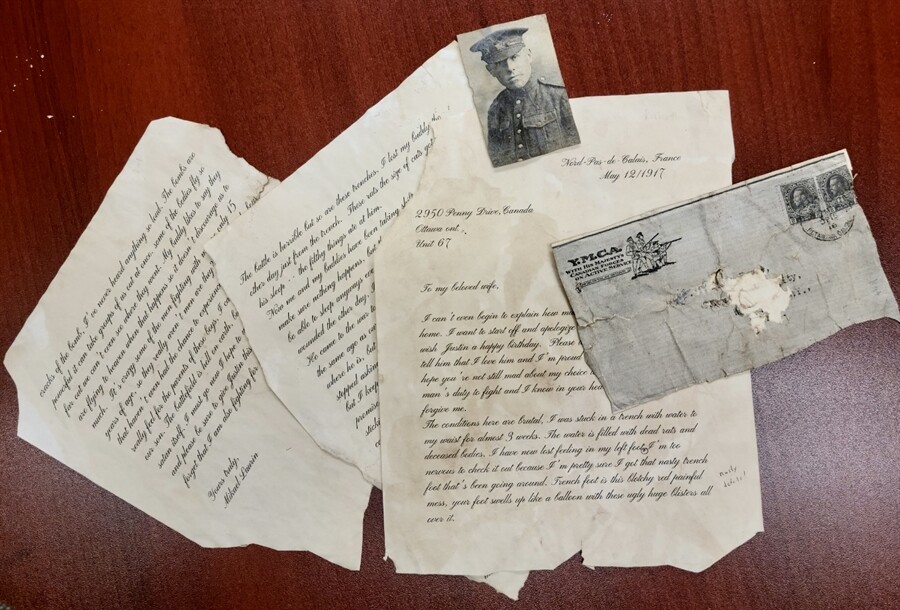 Nord-Pas-de-Calais, France
May 12/1917
2950 Penny Drive, Canada
Ottawa ont.
Unit 67
To my beloved wife,
I can't even begin to explain how
home. I want to start off and apologize
wish Justin a happy birthday. Please
tell him that I love him and I'm proud
hope you're not still mad about my choice
man's duty to fight and I know in your
forgive me.
The conditions here are brutal, I was stuck in a trench with water to
my waist for almost 3 weeks. The water is filled with dead rats and
deceased bodies. I have now lost feeling in my left foot, I'm too
nervous to check it out because I'm pretty sure I got that nasty trench
foot that's been going around. Trench foot is this blotchy red painful
mess, your foot swells up like a balloon with these ugly huge blisters all
over it.
The battle is horrible but so are these trenches. I lost my buddy
day just from the trench. These rats the size of cats
his sleep. the filthy things ate at him.
Now me and my buddies have been taking
make sure nothing happens,
be able to sleep anyways
wounded the other day.
He came to the war
the same age as
where he is, but
stopped asking
but I keep
promise
sounds of the bomb, I've never heard anything so loud. The bombs are
powerful it can take groups of us out at once. some of the bodies fly so
far out we can't even see where they went. My buddy likes to say they
are flying to heaven when that happens so it doesn't discourage us to
much. It's crazy some of the men fighting with only 15
years of age, so they really aren't men are they
that haven't even had the chance to experience
really feel for the parents of these boys. I
son. The battlefield is hell on earth,
satan itself. I must go now I hope to
and please be sure to give Justin this
forget that I am she fighting his
Yours truly,
Mikael Laurin
Y.M.C.A.
WITH HIS MAJESTY'S
CANADIAN FORCES
ON ACTIVE SERVICE